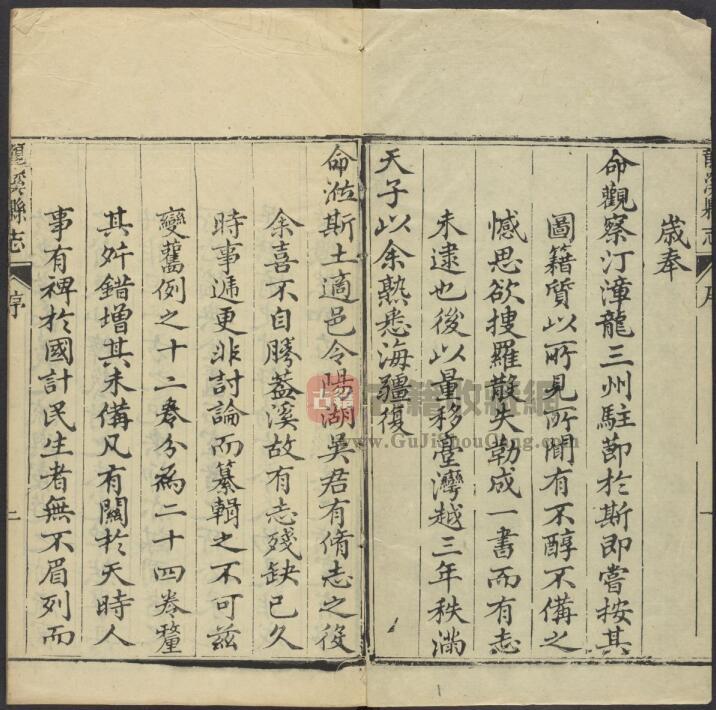 龍溪縣志
序
一
歲奉
命觀察汀漳龍三州駐節於斯即嘗按其
圖籍質以所見所聞有不醇不俻之
憾思欲搜羅散失勒成一書而有志
未逮也後以量移臺灣越三年秩滿
天子以余熟悉海疆復
命涖斯土適邑令陽湖吳君有脩志之役
余喜不自勝葢溪故有志殘缺已久
時事遞更非討論而纂輯之不可茲
變舊例之十二卷分為二十四卷釐
其舛錯增其未俻凡有關於天時人
事有裨於國計民生者無不眉列而
龍溪縣志
序
二
古籍收藏網
www.GuJiShouCang.com